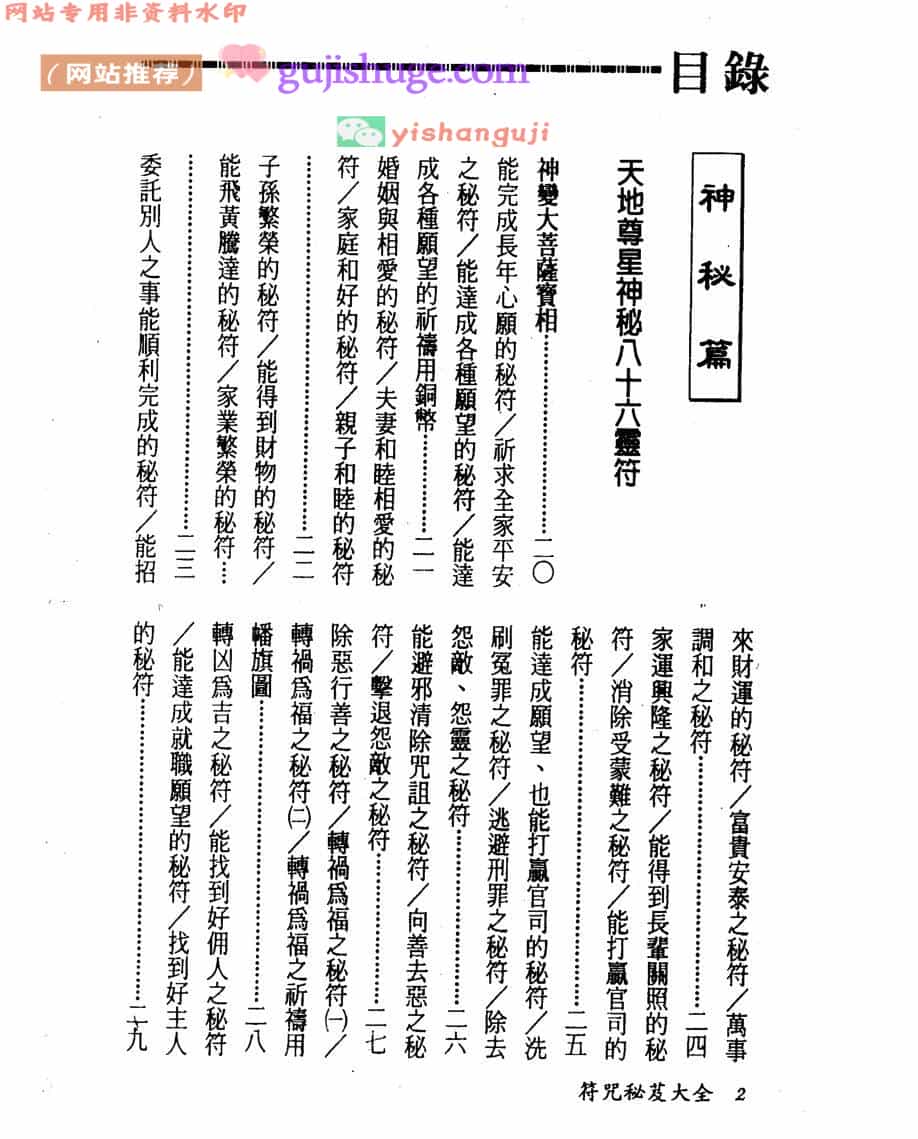 网站专用非资料水印
（网站推荐）
gujishuge.com
目錄
yishanguji
神秘篇
天地尊星神秘八十六靈符
神變大菩薩寶相………………二〇
能完成長年心願的秘符／祈求全家平安
之秘符／能達成各種願望的秘符／能達
成各種願望的祈禱用銅幣………二一
婚姻與相愛的秘符／夫妻和睦相愛的秘
符／家庭和好的秘符／親子和睦的秘符
………………二二
子孫繁榮的秘符／能得到財物的秘符／
能飛黃騰達的秘符／家業繁榮的秘符…
………………二三
委託別人之事能順利完成的秘符／能招
來財運的秘符／富貴安泰之秘符／萬事
調和之秘符………………二四
家運興隆之秘符／能得到長輩關照的秘
符／消除受蒙難之秘符／能打贏官司的
秘符………………二五
能達成願望、也能打贏官司的秘符／洗
刷冤罪之秘符／逃避刑罪之秘符／除去
怨敵、怨靈之秘符………………二六
能避邪清除咒詛之秘符／向善去惡之秘
符／擊退怨敵之秘符………………二七
除惡行善之秘符／轉禍爲福之秘符㈠／
轉禍爲福之秘符㈡／轉禍爲福之祈禱用
幡旗圖………………二八
轉凶爲吉之秘符／能找到好佣人之秘符
／能達成就職願望的秘符／找到好主人
的秘符………………二九
符咒秘芨大全 2